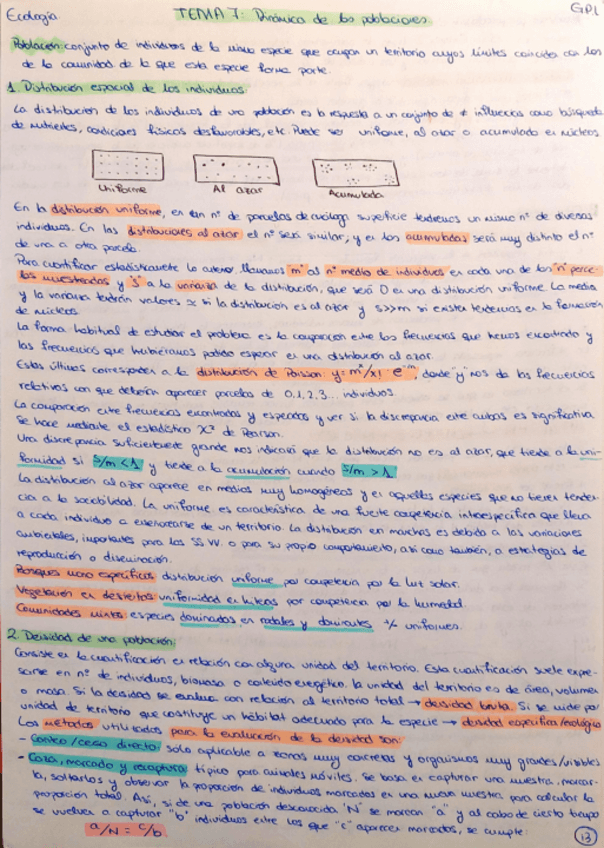 Ecología
GP.I
TEMA 7: Dinámica de las poblaciones.
Población: conjunto de individuos de la misma especie que ocupan un territorio cuyos límites coinciden con los
de la comunidad de la que esta especie forma parte.
1. Distribución espacial de los individuos:
La distribución de los individuos de una población es la respuesta a un conjunto de ≠ influencias como búsqueda
de nutrientes, condiciones físicas desfavorables, etc. Puede ser uniforme, al azar o acumulado en núcleos.
Uniforme
Al azar
Acumulada
En la distribución uniforme, en un nº de parcelas de análoga superficie tendremos un mismo nº de diversos
individuos. En las distribuciones al azar el nº será similar, y en las acumuladas será muy distinto el nº
de una a otra parcela.
Para cuantificar estadísticamente lo anterior llamamos "m" al nº medio de individuos en cada una de las "n" parce-
las muestreadas y "s" a la varianza de la distribución, que será 0 en una distribución uniforme. La media
y la varianza tendrán valores ≈ si la distribución es al azar y s>>m si existen tendencias en la formación
de núcleos.
La forma habitual de estudiar el problema es la comparación entre las frecuencias que hemos encontrado y
las frecuencias que hubiéramos podido esperar en una distribución al azar.
Estas últimas corresponden a la distribución de Poisson: y=mˣ/x! · e⁻ᵐ, donde "y" nos da las frecuencias
relativas con que deberían aparecer parcelas de 0,1,2,3... individuos.
La comparación entre frecuencias encontradas y esperadas y ver si la discrepancia entre ambas es significativa
se hace mediante el estadístico X² de Pearson.
Una discrepancia suficientemente grande nos indicará que la distribución no es al azar, que tiende a la uni-
formidad si s/m < 1 y tiende a la acumulación cuando s/m > 1.
La distribución al azar aparece en medios muy homogéneos y en aquellas especies que no tienen tenden-
cia a la sociabilidad. La uniforme es característica de una fuerte competencia intraespecífica que lleva
a cada individuo a enseñorearse de un territorio. La distribución en manchas es debida a las variaciones
ambientales, importantes para los SS.VV. o para su propio comportamiento, así como también, a estrategias de
reproducción o diseminación.
Bosques mono específicos distribución uniforme por competencia por la luz solar.
Vegetación en desiertos uniformidad en hileras por competencia por la humedad.
Comunidades mixtas: especies dominadas en rodales y dominantes +/- uniformes.
2. Densidad de una población:
Consiste en la cuantificación en relación con alguna unidad del territorio. Esta cuantificación suele expre-
sarse en nº de individuos, biomasa o contenido energético. La unidad del territorio es de área, volumen
o masa. Si la densidad se evalúa con relación al territorio total → densidad bruta. Si se mide por
unidad de territorio que constituye un hábitat adecuado para la especie → densidad específica/ecológica
Los métodos utilizados para la evaluación de la densidad son:
- Conteo/censo directo: solo aplicable a zonas muy concretas y organismos muy grandes/visibles
- Caza, marcado y recaptura: típico para animales móviles. Se basa en capturar una muestra, marcar-
la, soltarlos y observar la proporción de individuos marcados en una nueva muestra para calcular la
proporción total. Así, si de una población desconocida "N" se marcan "a" y al cabo de cierto tiempo
se vuelven a capturar "b" individuos entre los que "c" aparecen marcados, se cumple:
a/N = c/b.
13